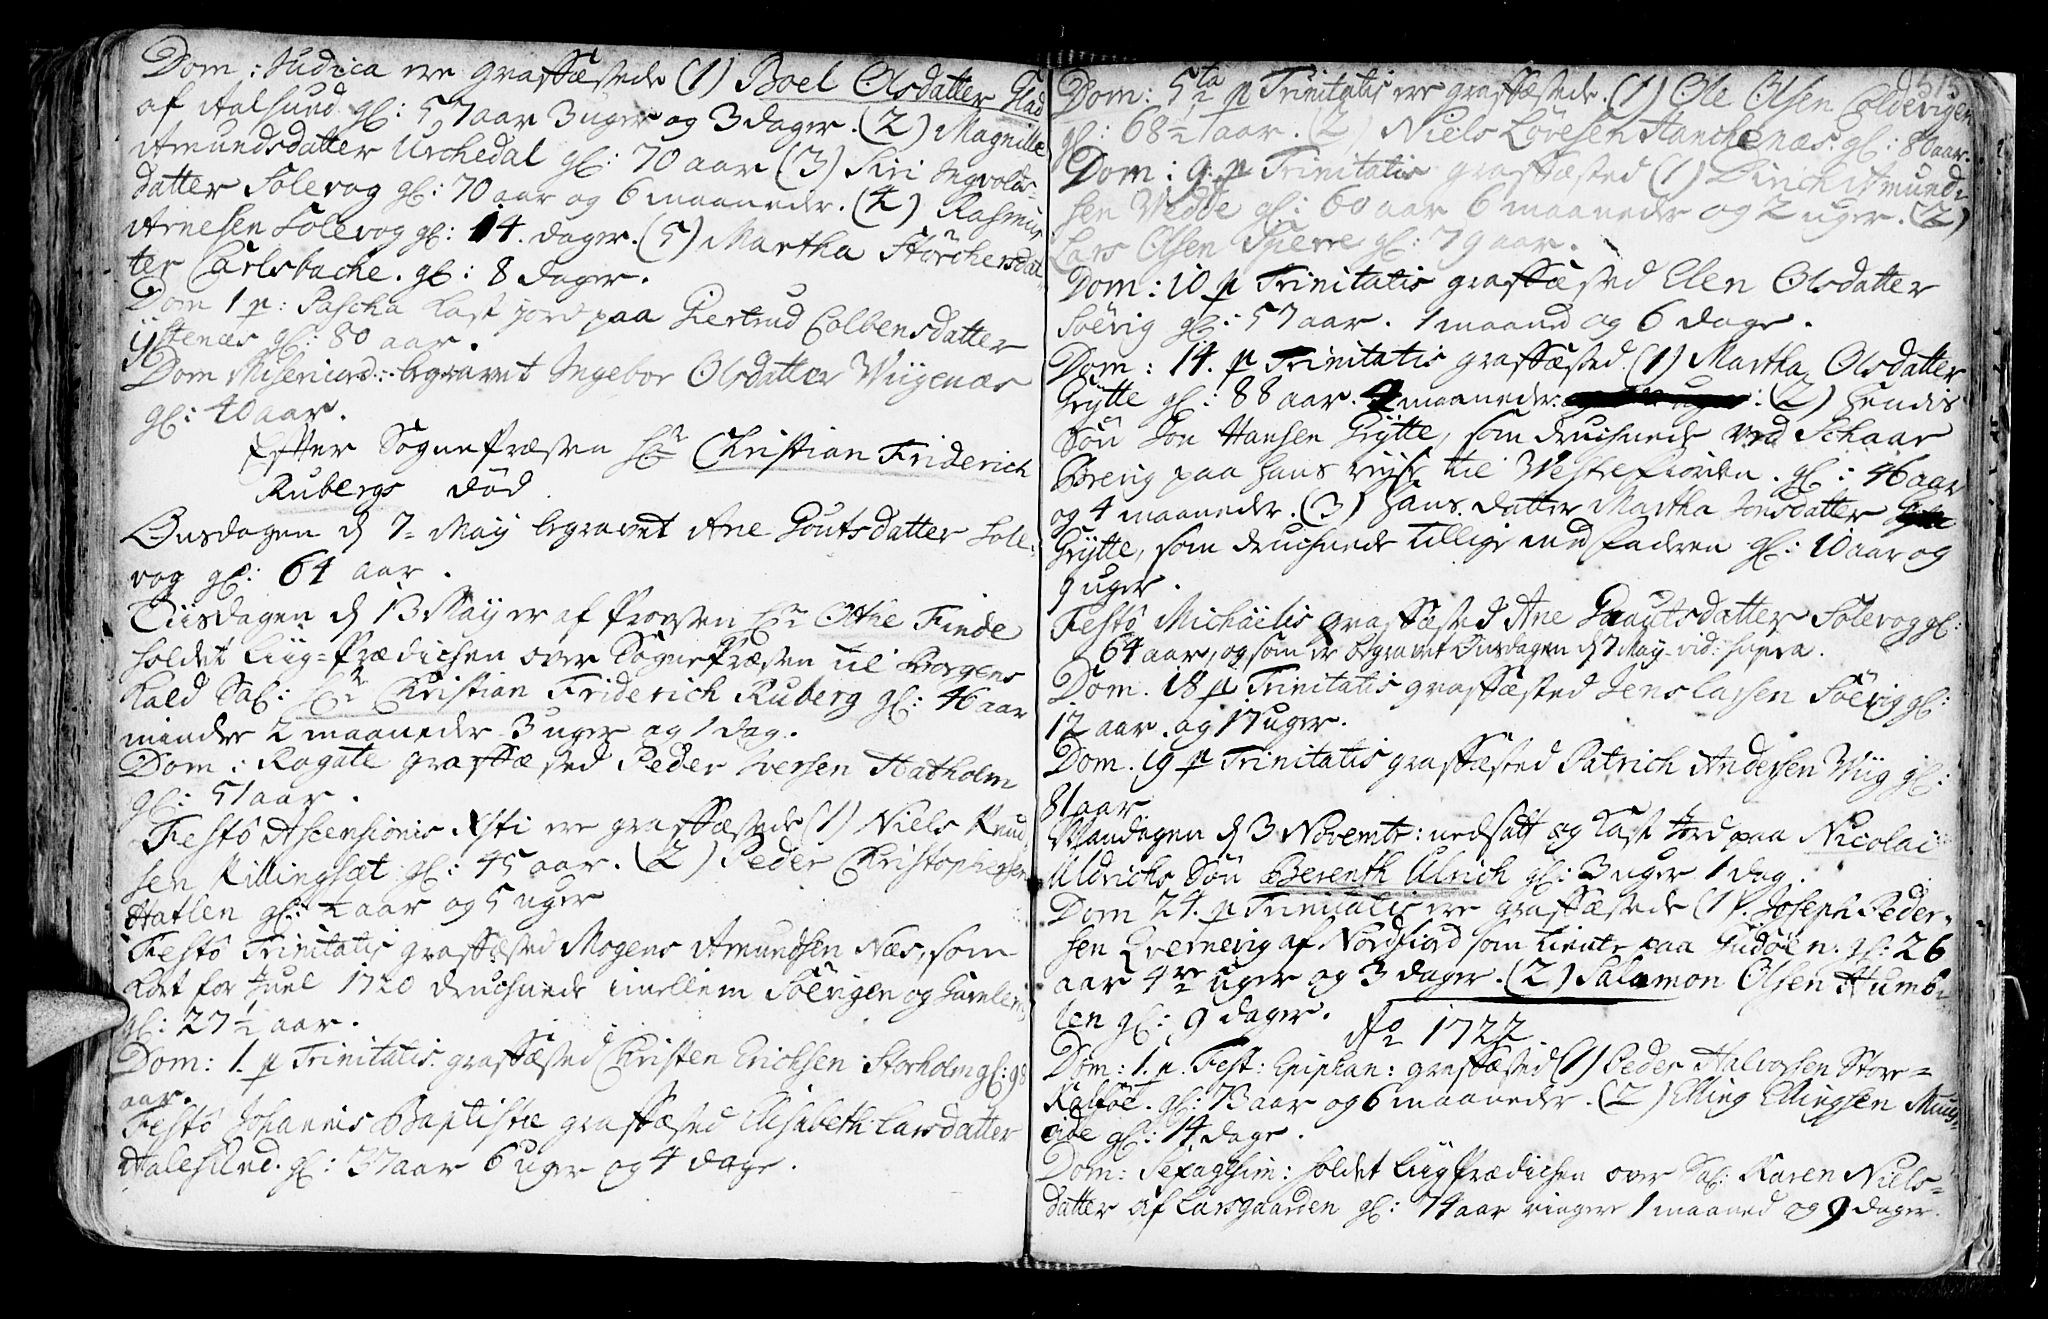 Dom: Judica ere graffæstede (1) Boel Olsdatter Flad
af Aalsund gl: 57 aar 3 uger og 3 dager. (2) Magnille
Amundsdatter Urchedal gl: 70 aar (3) Siri Ingvolds-
datter Solevog gl: 70 aar og 6 maaneder. (4) Rasmus
Arnesen Solevog gl: 14. dager. (5) Martha Störchersdat-
ter Carlsbache. gl: 8 dager.
Dom 1 p: Pascha kast jord paa Giertrud Colbensdatter
ystenæs gl: 80 aar.
Dom Misericord: begravet Ingebor Olsdatter Wiigenæs
gl: 40 aar.
Efter Sognepræsten Hr Christian Friderich
Rubergs død
Onsdagen d 7 May begravet Ane Goutsdatter Sole-
vog gl: 64 aar.
Tiisdagen d 13 May er af Provsten Hr Othe Finde
holdet Liig-Prædichen over Sognepræsten til Borgens
Kald Sal: Hr Christian Friderich Ruberg gl: 46 aar
minder 2 maaneder 3 uger og 1 dag.
Dom: Rogate graffæsted Peder Iversen Hatholm
gl: 51 aar.
Festô Ascensionis Xsti ere graffæstede (1) Niels Knud-
sen Killingsæt gl: 45 aar. (2) Peder Christophersen
Hatlen gl: ½ aar og 5 uger
Festô Trinitatis graffæsted Mogens Amundsen Næs, som
kort for Juel 1720 druchnede imellem Söevigen og
gl: 27½ aar.
Dom: 1. p Trinitatis graffæsted Christen Erichsen Storholm gl: 98
aar.
Festô Johannis Baptistæ graffæsted Elisabeth Larsdatter
Aalesund. gl: 37 aar 6 uger og 4 dage.
Dom: 5ta p Trinitatis ere graffæstede. (1) Ole Olsen Coldevigen
gl: 68½ aar. (2) Niels Lovesen Hanchenæs: gl: 80 aar.
Dom: 9. p Trinitatis graffæsted (1) Dirich Amund-
sen Vedde gl: 60 aar 6 maaneder og 2 uger. (2)
Lars Olsen Spierre gl: 79 aar.
Dom: 10 p Trinitatis graffæsted Elen Olsdatter
Söevig gl: 57 aar. 1 maaned og 6 dage.
Dom: 14. p Trinitatis graffæsted (1) Martha Olsdatter
Grytte gl: 88 aar. 4 maaneder: (2) hendes
Sön Jon Hansen Grytte, som druchnede ved Schaar
Brevig paa hans rejse til Vestefiorden. gl: 46 aar
og 4 maaneder. (3) hans datter Martha Jonsdatter
Grytte, som druchnede tillige med faderen gl: 10 aar og
9 uger.
Festô Michaëlis graffæsted Ane Goutsdatter Solevog gl:
64 aar, og som er begravet Onsdagen d 7 May vid: supra.
Dom. 18 p Trinitatis graffæsted Jens Lassen Söevig gl:
12 aar. og 17 uger.
Dom. 19 p Trinitatis graffæsted Patrich Andersen Wiig gl:
81 aar
Mandagen d 3 Novembr: nedsatt og kast Jord paa Nicolai
Uldrichs Sön Berenth Ulrich gl: 3 uger 1 dag.
Dom 24. p Trinitatis ere graffæstede (1). Joseph Peder-
sen Qvernevig af Nordfiord som tiente paa Gudöen. gl: 26
aar 4re uger og 3 dager. (2) Salamon Olsen Humb-
len gl: 9 dager.
Ao 1722
Dom: 1. p. Fest: Epiphan: graffæsted (1) Peder Halvorsen Store-
Kalföe. gl: 73 aar og 6 maaneder. (2) Elling Ellingsen Muus-
eide gl: 14 dage.
Dom: Sexagesim: holdet Liig Prædichen over Sal: Karen Niels-
datter af Larsgaarden gl: 74 aar ringere 1 maaned og 9 dager.